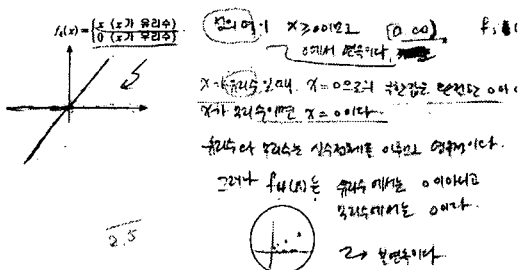 f₄(x) = { x (x가 유리수)
0 (x가 무리수)
정의역이 x≥0이므로 [0 ∞)
0에서 연속이다.
x가 유리수일때. x=0으로의 극한값은 0이
x가 무리수이면 x=0이다.
유리수와 무리수는 실수전체를 이루고 연속적이다.
그러나 f₄(x)는 유리수에서는 0이아니고
무리수에서는 0이다.
→ 불연속이다.
2.5